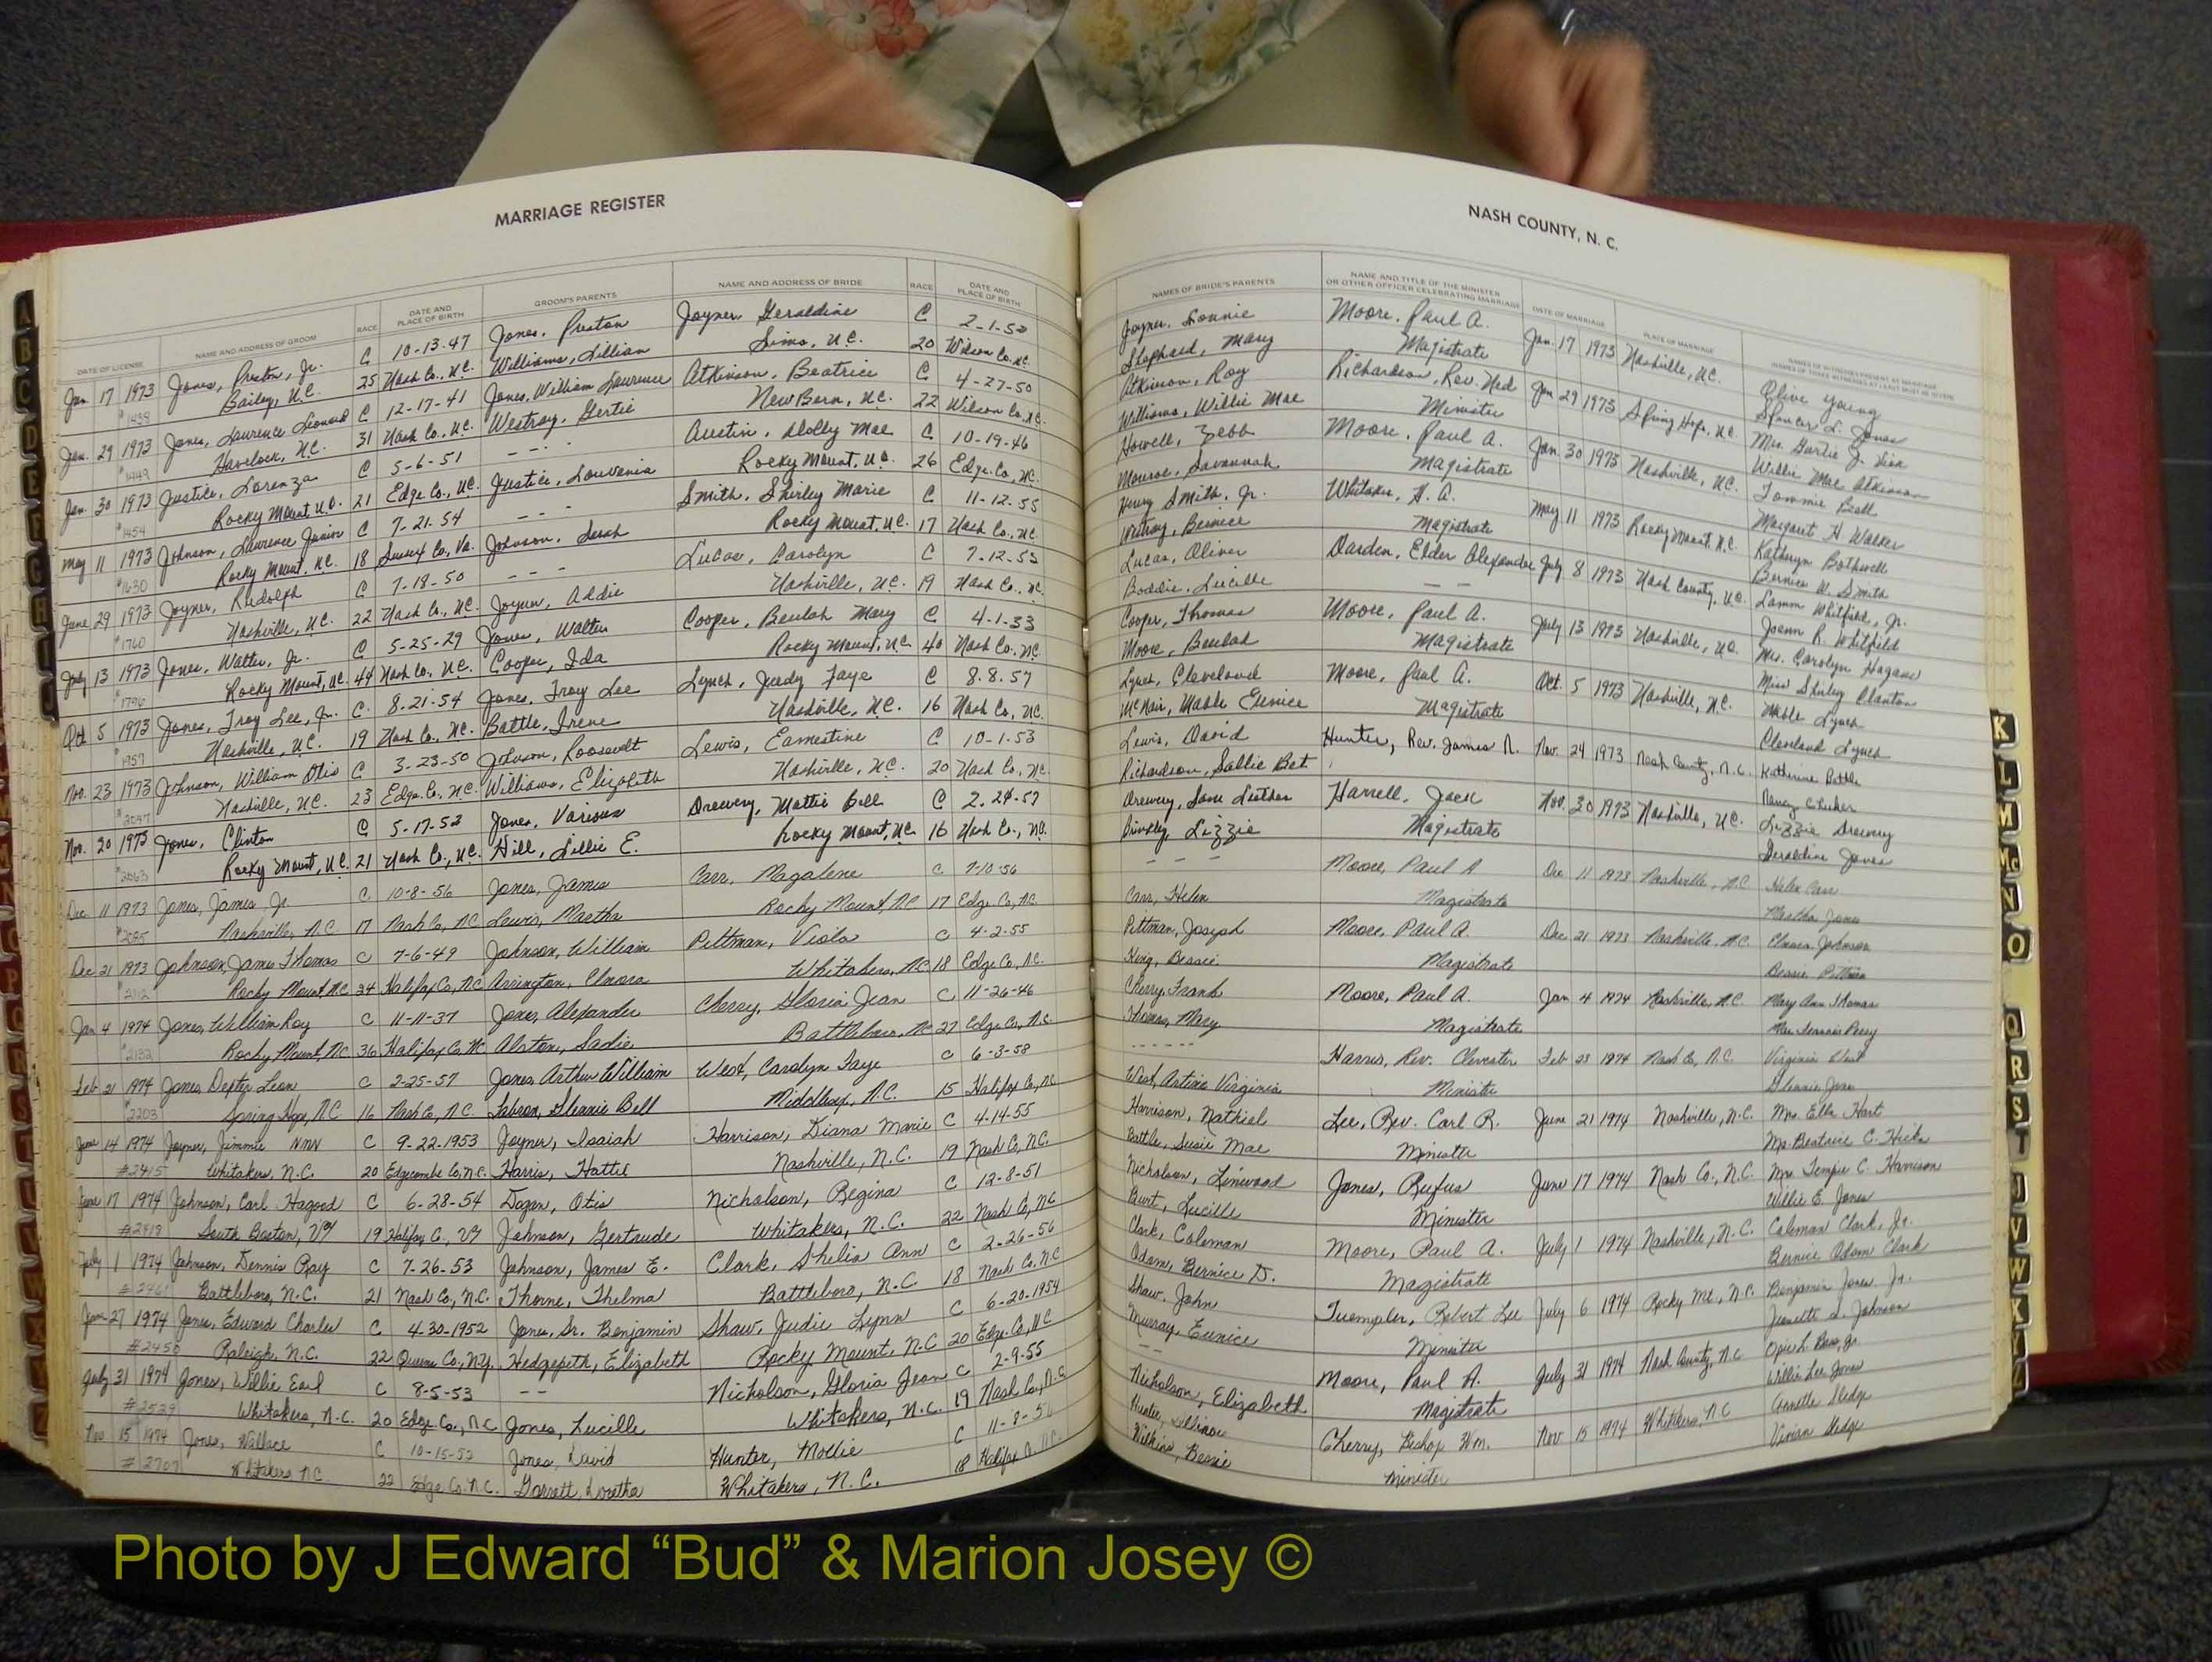 MARRIAGE REGISTER
DATE OF LICENSE NAME AND ADDRESS OF GROOM RACE DATE AND PLACE OF BIRTH GROOM'S PARENTS NAME AND ADDRESS OF BRIDE RACE DATE AND PLACE OF BIRTH
Jan. 17 1973 Jones, Preston, Jr. C 10-13-47 Jones, Preston Joyner, Geraldine C 2-1-52
#1439 Bailey, N.C. 25 Nash Co., N.C. Williams, Lillian Sims, N.C. 20 Wilson Co. N.C.
Jan. 29 1973 Jones, Laurence Leonard C 12-17-41 Jones, William Laurence Atkinson, Beatrice C 4-27-50
#1449 Havelock, N.C. 31 Nash Co., N.C. Westray, Gertie New Bern, N.C. 22 Wilson Co., N.C.
Jan. 30 1973 Justice, Lorenza C 5-6-51 - - - Austin, Dolly Mae C 10-19-46
#1454 Rocky Mount, N.C. 21 Edge Co., N.C. Justice, Louvenia Rocky Mount, N.C. 26 Edge. Co., N.C.
May 11 1973 Johnson, Laurence Junior C 7-21-54 - - - Smith, Shirley Marie C 11-12-55
#1630 Rocky Mount, N.C. 18 Sussex Co., Va. Johnson, Leah Rocky Mount, N.C. 17 Nash Co., N.C.
June 29 1973 Joyner, Rudolph C 7-18-50 - - - Lucas, Carolyn C 7-12-53
#1760 Nashville, N.C. 22 Nash Co., N.C. Joyner, Addie Nashville, N.C. 19 Nash Co., N.C.
July 13 1973 Jones, Walter, Jr. C 5-25-29 Jones, Walter Cooper, Beulah Mary C 4-1-33
#1796 Rocky Mount, N.C. 44 Nash Co., N.C. Cooper, Ida Rocky Mount, N.C. 40 Nash Co., N.C.
Oct. 5 1973 Jones, Troy Lee, Jr. C 8-21-54 Jones, Troy Lee Lynch, Judy Faye C 8-8-57
#1957 Nashville, N.C. 19 Nash Co., N.C. Battle, Irene Nashville, N.C. 16 Nash Co., N.C.
Nov. 23 1973 Johnson, William Otis C 3-23-50 Johnson, Roosevelt Lewis, Earnestine C 10-1-53
#2047 Nashville, N.C. 23 Edge. Co., N.C. Williams, Elizabeth Nashville, N.C. 20 Nash Co., N.C.
Nov. 20 1973 Jones, Clinton C 5-17-52 Jones, Various Drewery, Mattie Bell C 2-24-57
#2063 Rocky Mount, N.C. 21 Nash Co., N.C. Hill, Lillie E. Rocky Mount, N.C. 16 Nash Co., N.C.
Dec 11 1973 Jones, James Jr C 10-8-56 Jones, James Carr, Magalene C 7-10-56
#2095 Nashville, N.C. 17 Nash Co, N.C. Lewis, Martha Rocky Mount, N.C. 17 Edge. Co, N.C.
Dec 21 1973 Johnson, James Thomas C 7-6-49 Johnson, William Pittman, Viola C 4-2-55
#2112 Rocky Mount, N.C. 34 Halifax Co, N.C. Arrington, Elnora Whitakers, N.C. 18 Edge Co, N.C.
Jan 4 1974 Jones, William Roy C 11-11-37 Jones, Alexander Cherry, Gloria Jean C 11-26-46
#2132 Rocky Mount, N.C. 36 Halifax Co, N.C. Alston, Sadie Battleboro, N.C. 27 Edge Co, N.C.
Feb 21 1974 Jones, Dexter Leon C 2-25-57 Jones, Arthur William West, Carolyn Faye C 6-3-58
#2203 Spring Hope, N.C. 16 Nash Co, N.C. Glennie Bell Middlesex, N.C. 15 Halifax Co, N.C.
June 14 1974 Joyner, Jimmie NMN C 9-22-1953 Joyner, Isaiah Harrison, Diana Marie C 4-14-55
#2415 Whitakers, N.C. 20 Edgecombe Co N.C. Harris, Hattie Nashville, N.C. 19 Nash Co, N.C.
June 17 1974 Johnson, Carl Hagood C 6-28-54 Dogan, Otis Nicholson, Regina C 12-8-51
#2418 South Boston, VA 19 Halifax C., VA Johnson, Gertrude Whitakers, N.C. 22 Nash Co, N.C.
July 1 1974 Johnson, Dennis Ray C 7-26-53 Johnson, James E. Clark, Shelia Ann C 2-26-56
Battleboro, N.C. 21 Nash Co, N.C. Thorne, Thelma Battleboro, N.C. 18 Nash Co, N.C.
June 27 1974 Jones, Edward Charles C 4-30-1952 Jones, Sr. Benjamin Shaw, Judie Lynn C 6-20-1954
#2450 Raleigh, N.C. 22 Queens Co, N.Y. Hedgepeth, Elizabeth Rocky Mount, N.C. 20 Edge. Co, N.C.
July 31 1974 Jones, Willie Earl C 8-5-53 - - Nicholson, Gloria Jean C 2-9-55
#2529 Whitakers, N.C. 20 Edge Co, N.C. Jones, Lucille Whitakers, N.C. 19 Nash Co, N.C.
Nov 15 1974 Jones, Wallace C 10-15-52 Jones, David Hunter, Mollie C
#2707 Whitakers N.C. 22 Edge. Co. N.C. Garrett, Loretha Whitakers, N.C. 18 Halifax
NASH COUNTY, N. C.
NAMES OF BRIDE'S PARENTS NAME AND TITLE OF THE MINISTER OR OTHER OFFICER CELEBRATING MARRIAGE DATE OF MARRIAGE PLACE OF MARRIAGE
Joyner, Lonnie Moore, Paul A. Jan. 17 1973 Nashville, N.C. Olive Young
Shephard, Mary Magistrate Spencer L. Jones
Atkinson, Roy Richardson, Rev. Ned Jan 29 1973 Spring Hope, N.C. Mrs. Gertie J.
Williams, Willie Mae Minister Willie Mae Atkinson
Howell, Zebb Moore, Paul A. Jan. 30 1973 Nashville, N.C. Tommie Bell
Monroe, Savannah Magistrate Margaret H Walker
Henry Smith, Jr. Whitaker, H. A. May 11 1973 Rocky Mount, N.C. Kathryn Bothwell
Westray, Bernice Magistrate Bernice W. Smith
Lucas, Oliver Darden, Elder Alexander July 8 1973 Nash County, N.C. Lamm Whitfield, Jr.
Boddie, Lucille - - Joann R. Whitfield
Cooper, Thomas Moore, Paul A. July 13 1973 Nashville, N.C. Mrs. Carolyn Hagans
Moore, Beulah Magistrate Miss Shirley Clanton
Lynch, Cleveland Moore, Paul A. Oct. 5 1973 Nashville, N.C. Mable Lynch
McNair, Mable Eunice Magistrate Cleveland Lynch
Lewis, David Hunter, Rev. James R. Nov. 24 1973 Nash County, N.C. Katherine Battle
Richardson, Sallie Bet Nancy
Drewery, Sam Luther Harrell, Jack Nov. 30 1973 Nashville, N.C. Lizzie Drewery
Brinkley, Lizzie Magistrate Geraldine Jones
- - - Moore, Paul A Dec 11 1973 Nashville, N.C. Helen Carr
Carr, Helen Magistrate Martha Jones
Pittman, Joseph Moore, Paul A. Dec 21 1973 Nashville, N.C. Elnora Johnson
King, Bessie Magistrate Bessie Pittman
Cherry, Frank Moore, Paul A. Jan 4 1974 Nashville, N.C. Mary Ann Thomas
Thomas, Mary Magistrate
- - - - - - Harris, Rev. Clevester Feb 23 1974 Nash Co, N.C. Virginia West
West, Artine Virginia Minister Glennie Jones
Harrison, Nathiel Lee, Rev. Carl R. June 21 1974 Nashville, N.C. Mrs. Ella Hart
Battle, Susie Mae Minister Ms. Beatrice C. Hicks
Nicholson, Linwood Jones, Rufus June 17 1974 Nash Co., N.C. Mrs. Tempie C. Harrison
Burt, Lucille Minister Willie E. Jones
Clark, Coleman Moore, Paul A. July 1 1974 Nashville, N.C. Coleman Clark, Jr.
Adams, Bernice D. Magistrate Bernice Adams Clark
Shaw, John Tuempler, Robert Lee July 6 1974 Rocky Mt., N.C. Benjamin Jones, Jr.
Murray, Eunice Minister Jeanette S. Johnson
- - Moore, Paul A. July 31 1974 Nash County, N.C.
Nicholson, Elizabeth Magistrate Willie Lee Jones
Cherry, Bishop Wm. Nov 15 1974 Whitakers, N.C. Annette Sledge
Wilkins, Bessie Minister Vivian Sledge
A
B
C
D
E
F
G
H
I
J
K
L
M
Mc
N
O
Q
R
S
T
U
V
W
X
Z
Photo by J Edward “Bud” & Marion Josey ©